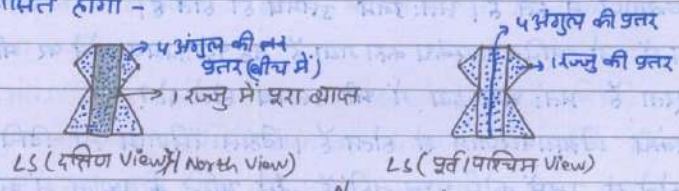 होगा -
५ अंगुल की
प्रतर (बीच में)
१ रज्जु में पूरा व्याप्त
LS (दक्षिण View / North View)
५ अंगुल की प्रतर
१ रज्जु की प्रतर
LS (पूर्व / पश्चिम View)